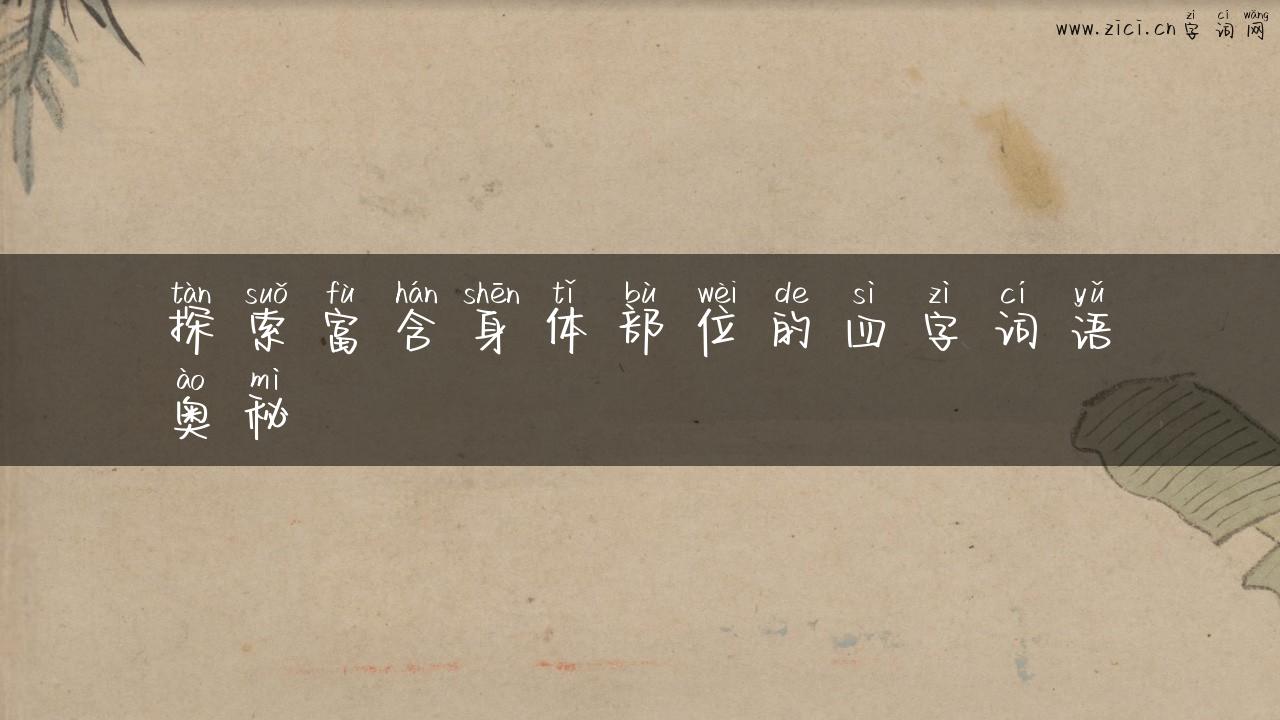 zì cí wǎng
www.zici.cn 字词网
tàn suǒ fù hán shēn tǐ bù wèi de sì zì cí yǔ
探索富含身体部位的四字词语
ào mì
奥秘